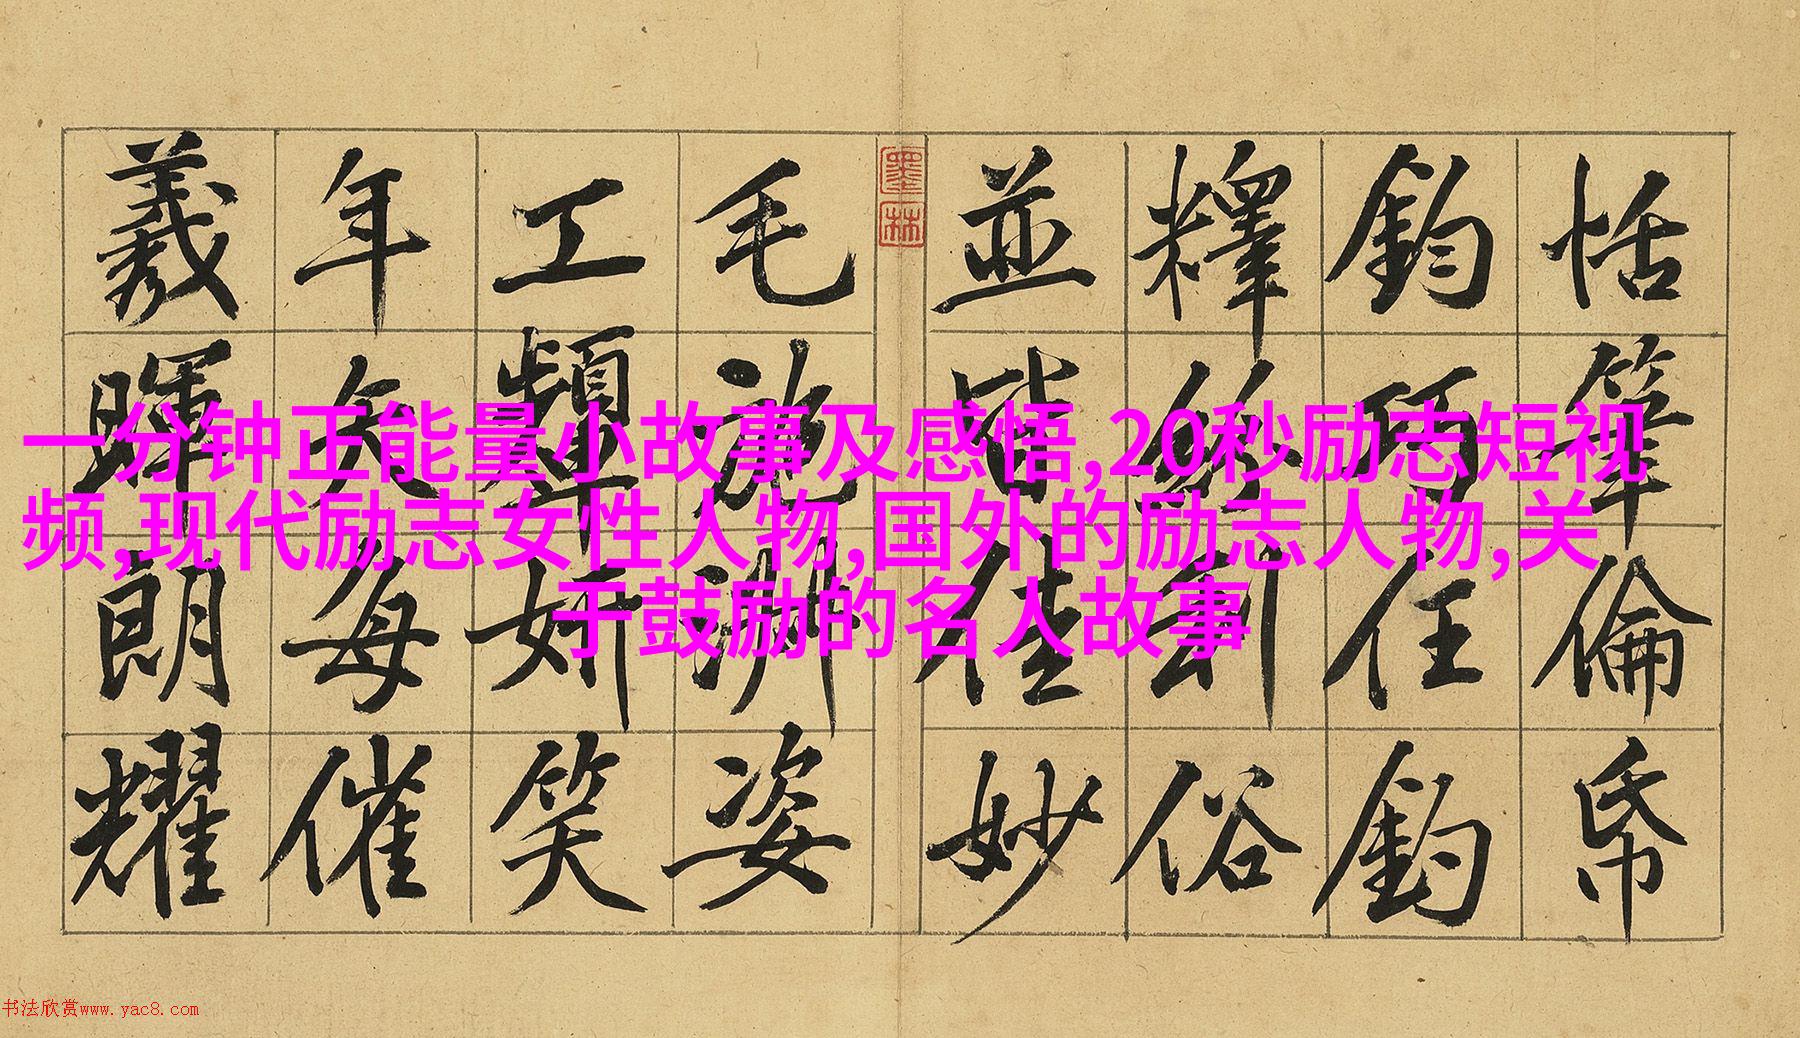 恬筆倫帋
鈞巧任釣
釋紛利俗
並皆佳妙
墨林
毛施淑姿
工顰妍笑
年矢每催
羲暉朗耀
一分钟正能量小故事及感悟,20秒励志短视
频,现代励志女性人物,国外的励志人物,关
于鼓励的名人故事
书法欣赏www.yac8.com